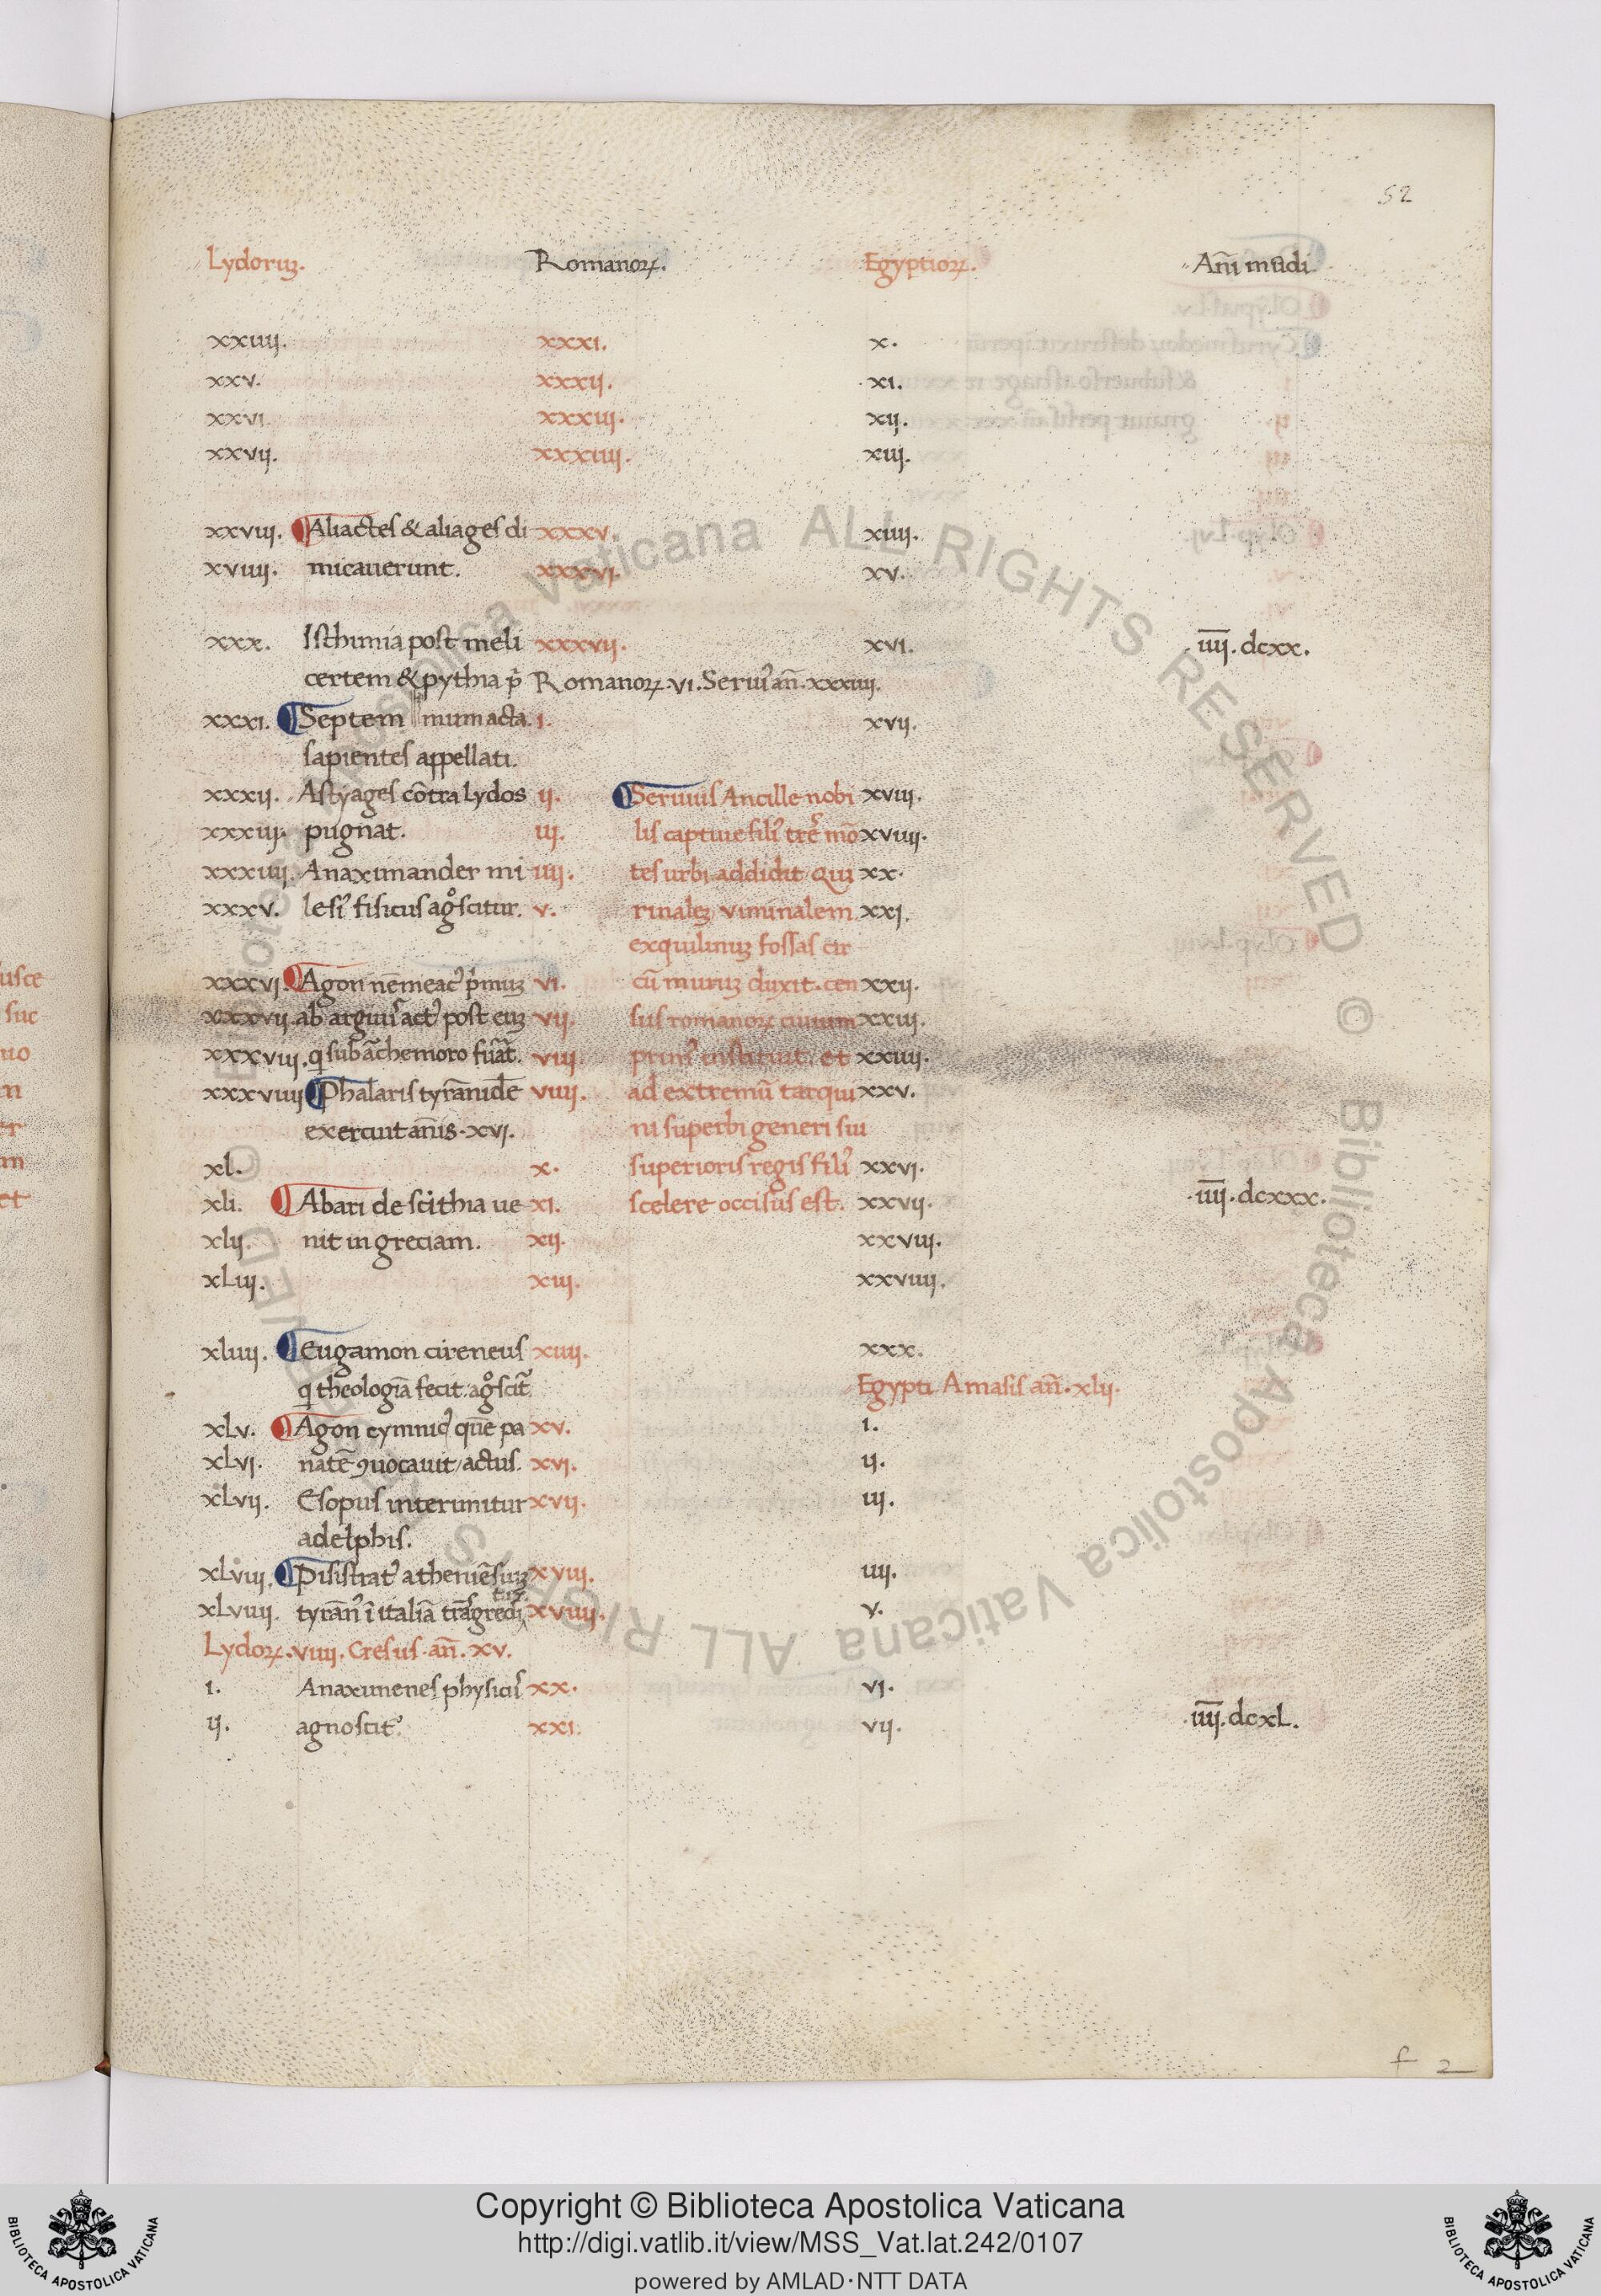 52
Lydoruꝫ. Romanoꝝ. Egyptioꝝ. Añi mũdi
xxiiij. xxxi. x.
xxv. xxxij. xi.
xxvi. xxxiij. xij.
xxvij. xxxiiij. xiij.
xxviij. Aliactes & aliages di xxxv. xiiij.
xviiij. micauerunt. xxxvi. xv.
xxx. Isthimia post meli xxxvij. xvi. iiij. dcxx.
certem & pythia p̃ Romanoꝝ. vi. Seruiꝰ añ. xxxiiij.
xxxi. Septem mum acta. i. xvij.
sapientes appellati.
xxxij. Astyages cõtra lydos ij. Seruius Ancille nobi xviij.
xxxiij. pugnat. iij. lis captiue filiꝰ mõ xviiij.
xxxiiij. Anaximander mi iiij. tes urbi addidit Qui xx.
xxxv. lesiꝰ fisicus agͦscitur. v. rinaleꝫ viminalem xxi.
exquilinuꝫ fossas cir
xxxvi. Agon nẽmeacꝰ pͥmuꝫ vi. cũ muruꝫ duxit. cen xxij.
xxxvij. ab argiuis actꝰ post euꝫ vij. sus romanoꝝ ciuium xxiij.
xxxviij. q sub achemoro fũat. viij. primꝰ instituit. et xxiiij.
xxxviiij Phalaris tyrãnidẽ viiij. ad extremũ tarqui xxv.
exercuit añis. xvi. ni superbi generi sui
xl. x. superioris regis filiꝰ xxvi.
xli. Abari de scithia ue xi. scelere occisus est. xxvij. iiij. dcxxx.
xlij. nit in greciam. xij. xxviij.
xLiij. xiij. xxviiij.
xliiij. Eugamon cireneus xiiij. xxx.
q theologiã fecit. agͦscit᷑ Egypti Amasis añ. xlij.
xLv. Agon cymnicꝰ quẽ pa xv. i.
xLvi. natẽ ꝯuocauit / actus. xvi. ij.
xLvij. Esopus interimitur xvij. iij.
adelphis.
xLviij. Pisistratꝰ atheniẽsiuꝫ xviij. iiij.
xLviiij. tyrãnꝰ ĩ italiã trãsgredi xviiij. v.
Lydoꝝ. viiij. Cresus. añ. xv.
i. Anaximenes physicus xx. vi.
ij. agnoscitꝰ. xxi. vij. iiij. dcxL.
f 2
Copyright © Biblioteca Apostolica Vaticana
http://digi.vatlib.it/view/MSS_Vat.lat.242/0107
powered by AMLAD·NTT DATA
BIBLIOTECA APOSTOLICA VATICANA
BIBLIOTECA APOSTOLICA VATICANA
© Biblioteca Apostolica Vaticana ALL RIGHTS RESERVED
© Biblioteca Apostolica Vaticana ALL RIGHTS RESERVED